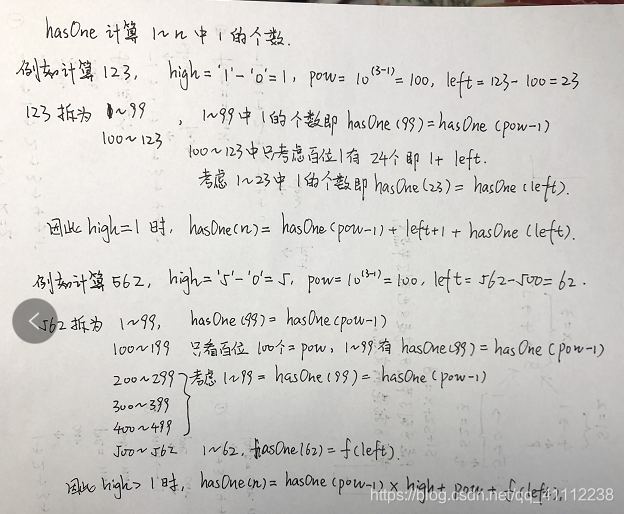 hasOne 计算 1~n 中 1 的个数.
例如计算 123, high = '1'-'0' = 1, pow = 10^(3-1) = 100, left = 123-100 = 23
123 拆为 1~99 , 1~99 中 1 的个数即 hasOne (99) = hasOne (pow-1)
100~123 100~123 中只考虑百位 1 有 24 个即 1+ left.
考虑 1~23 中 1 的个数即 hasOne (23) = hasOne (left).
因此 high=1 时, hasOne(n) = hasOne (pow-1) + left+1 + hasOne (left).
例如计算 562, high = '5'-'0' = 5, pow = 10^(3-1) = 100, left = 562-500 = 62.
562 拆为 1~99, hasOne (99) = hasOne (pow-1)
100~199 只看百位 100个 = pow, 1~99 有 hasOne (99) = hasOne (pow-1)
200~299 考虑 1~99 = hasOne (99) = hasOne (pow-1)
300~399
400~499
500~562 1~62, hasOne (62) = f(left).
因此 high>1 时, hasOne(n) = hasOne (pow-1) × high + pow + f(left).
https://blog.csdn.net/qq_41112238